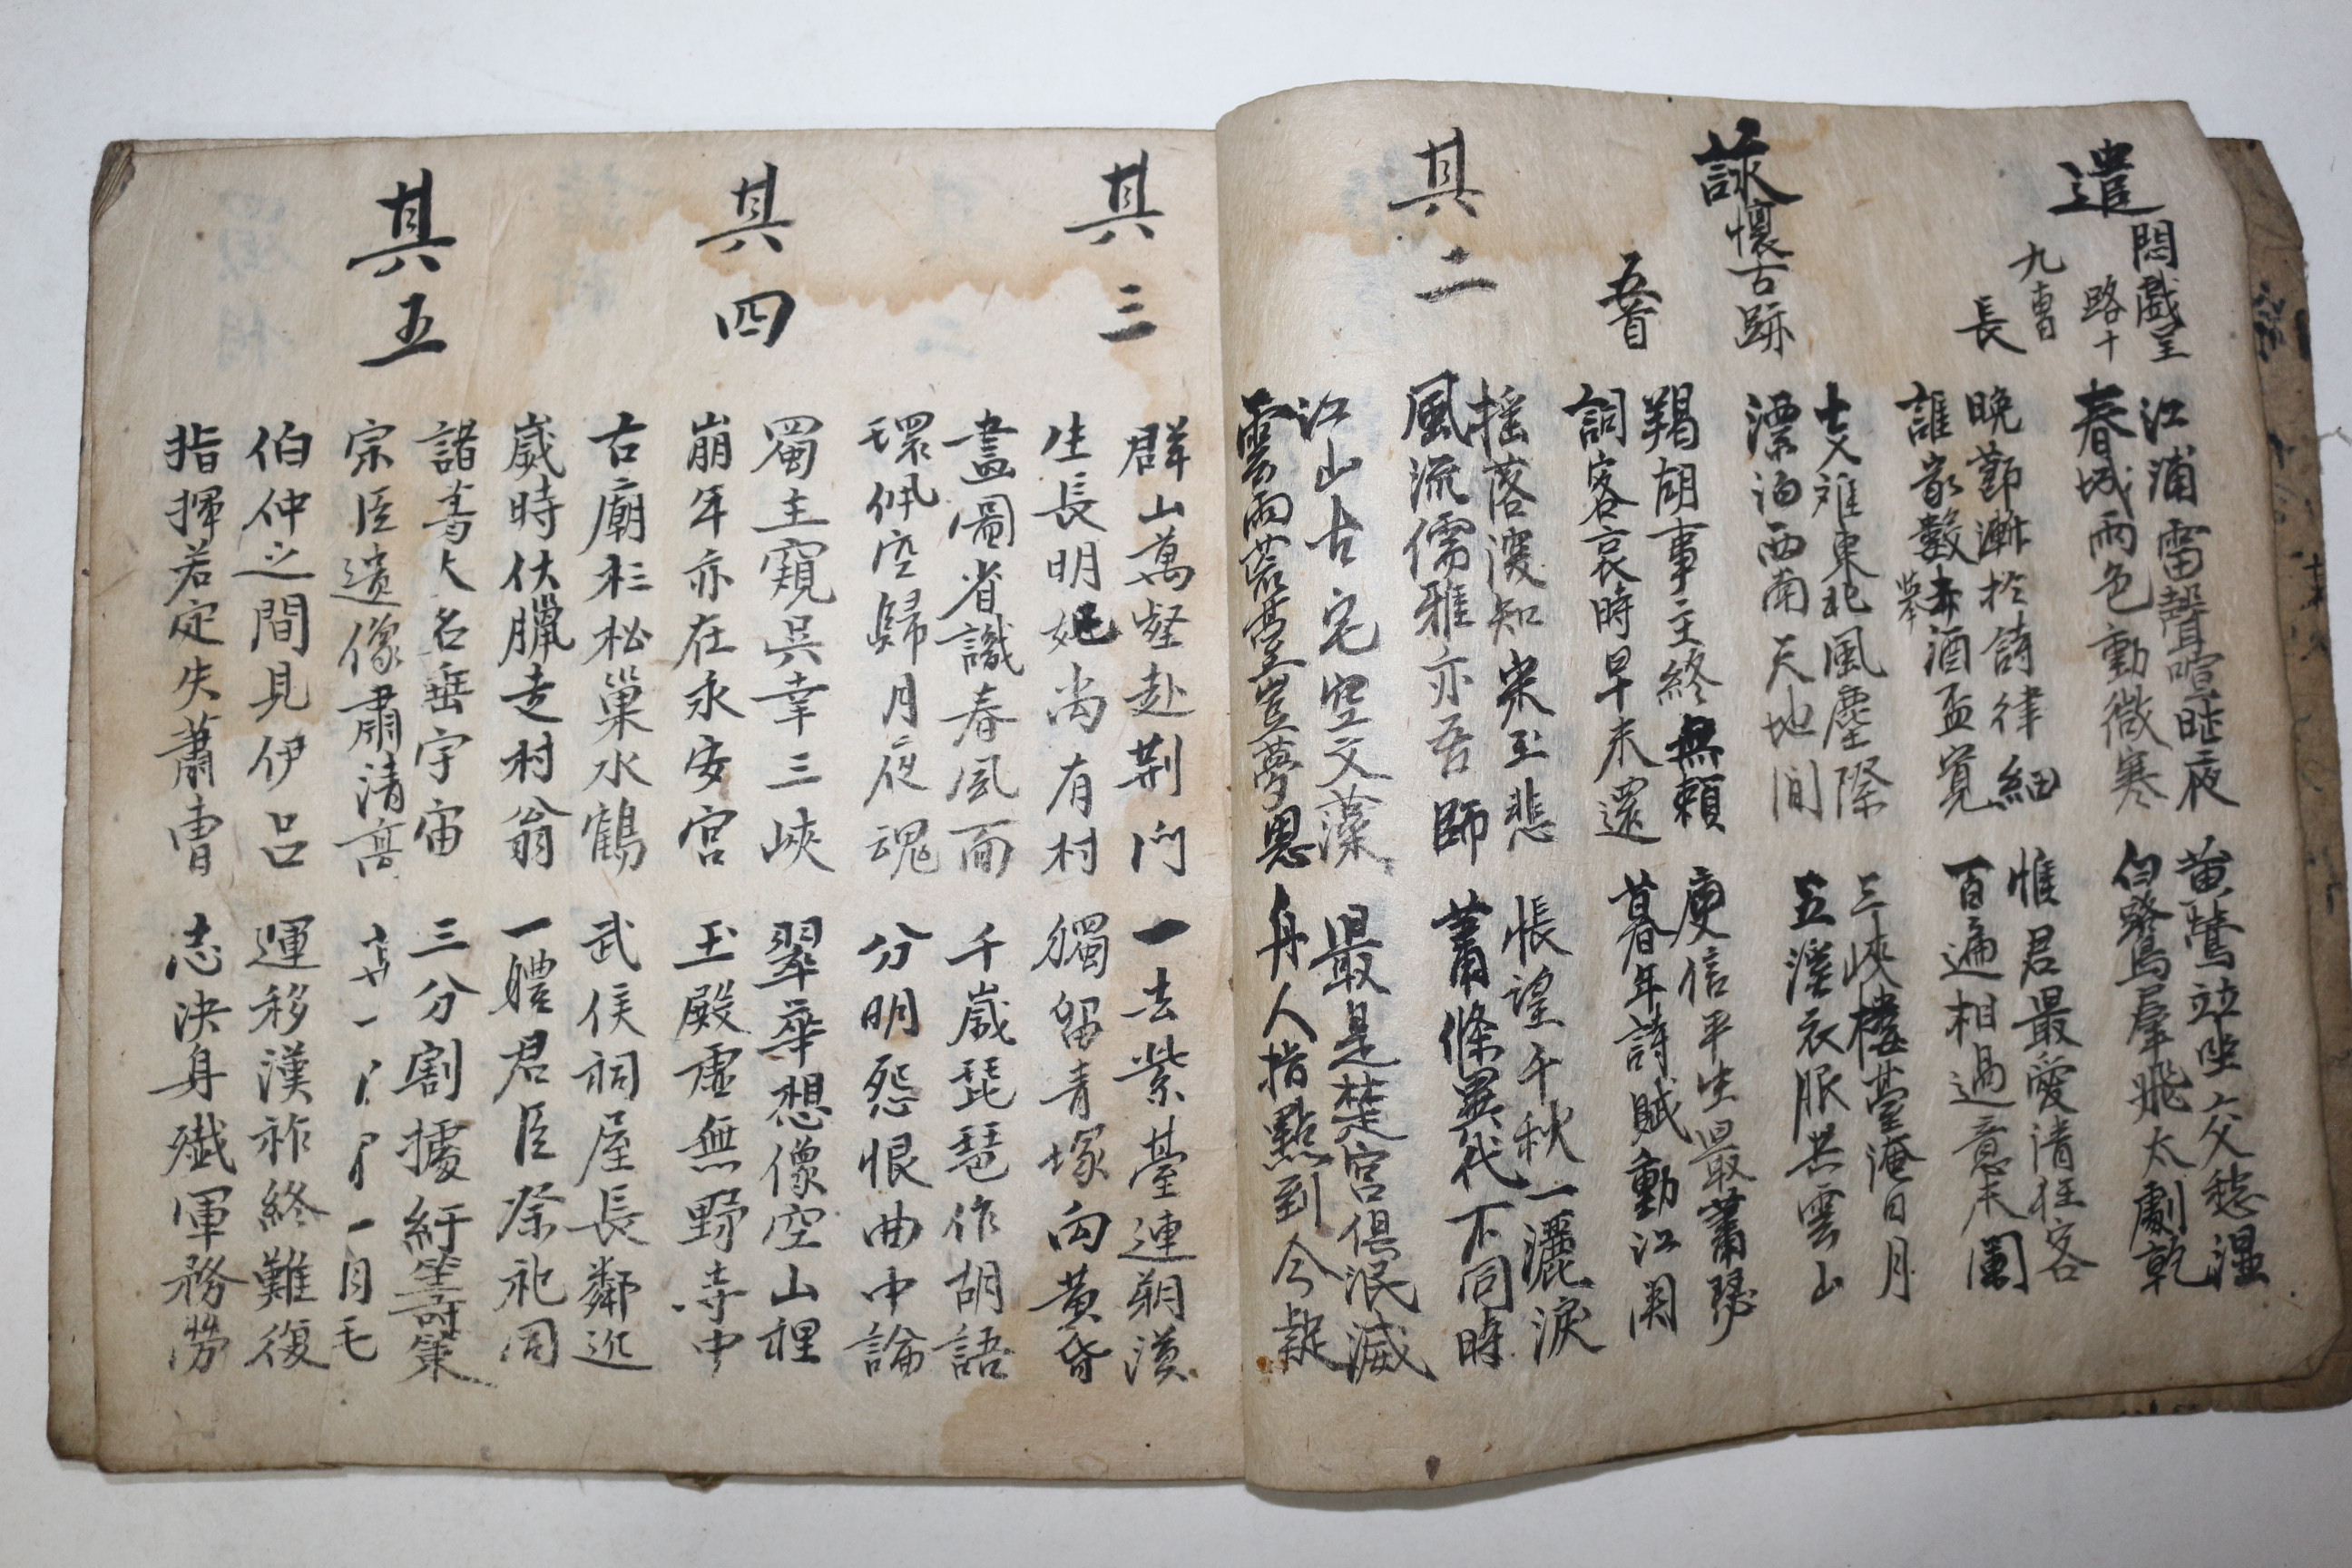 遣悶戲呈
路十
九曹
長
江浦雷聲喧昨夜
春城雨色動微寒
黃鶯竝坐交愁温
白鷺羣飛太劇乾
晚節漸於詩律細
誰家數去酒盃寬
擧
惟君最愛清狂客
百遍相過意未闌
詠懷古跡
五首
支难東北風塵際
漂泊西南天地間
三峽樓臺淹日月
五溪衣服共雲山
羯胡事主終無賴
詞客哀時早未還
庾信平生最蕭瑟
暮年詩賦動江関
其二
搖落深知宋玉悲
風流儒雅亦吾師
悵望千秋一灑淚
蕭條異代不同時
江山古宅空文藻
雲雨荒臺豈夢思
最是楚宮俱泯滅
舟人指點到今疑
其三
群山萬壑赴荆门
生長明妃尚有村
一去紫臺連朔漠
獨留青塚向黃昏
畫圖省識春風面
環佩空歸月夜魂
千歲琵琶作胡語
分明怨恨曲中論
其四
蜀主窺吳幸三峽
崩年亦在永安宮
翠華想像空山裡
玉殿虛無野寺中
古廟杉松巢水鶴
歲時伏臘走村翁
武侯祠屋長鄰近
一體君臣祭祀同
其五
諸葛大名垂宇宙
宗臣遺像肅清高
三分割據紆籌策
毛
伯仲之間見伊呂
指揮若定失蕭曹
運移漢祚終難復
志決身殲軍務勞